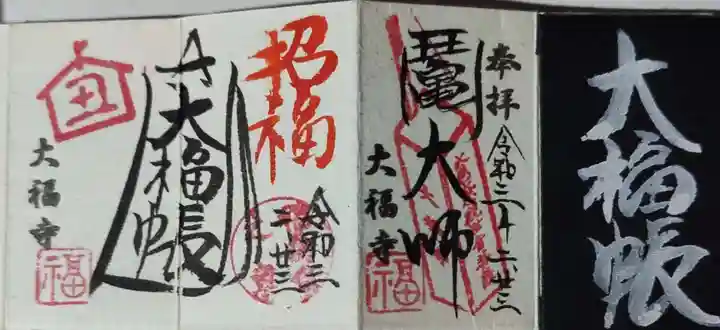 大福帳
奉拝
令和三十二廿三
大師
大福寺
福
招福
令和三
二廿三
大福帳
丑
大福寺
福